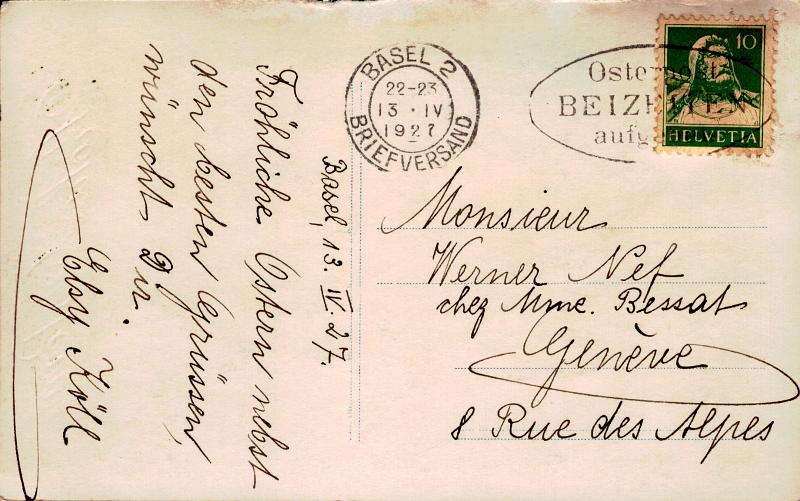 Basel, 13. IV. 27.
Fröhliche Ostern nebst
den besten Grüssen,
wünscht Dir.
Elsy Köll
BASEL 2
22-23
13 · IV
1927
BRIEFVERSAND
BEIZEITEN
10
HELVETIA
Monsieur
Werner Nef
chez Mme. Bessat
Genève
8 Rue des Alpes